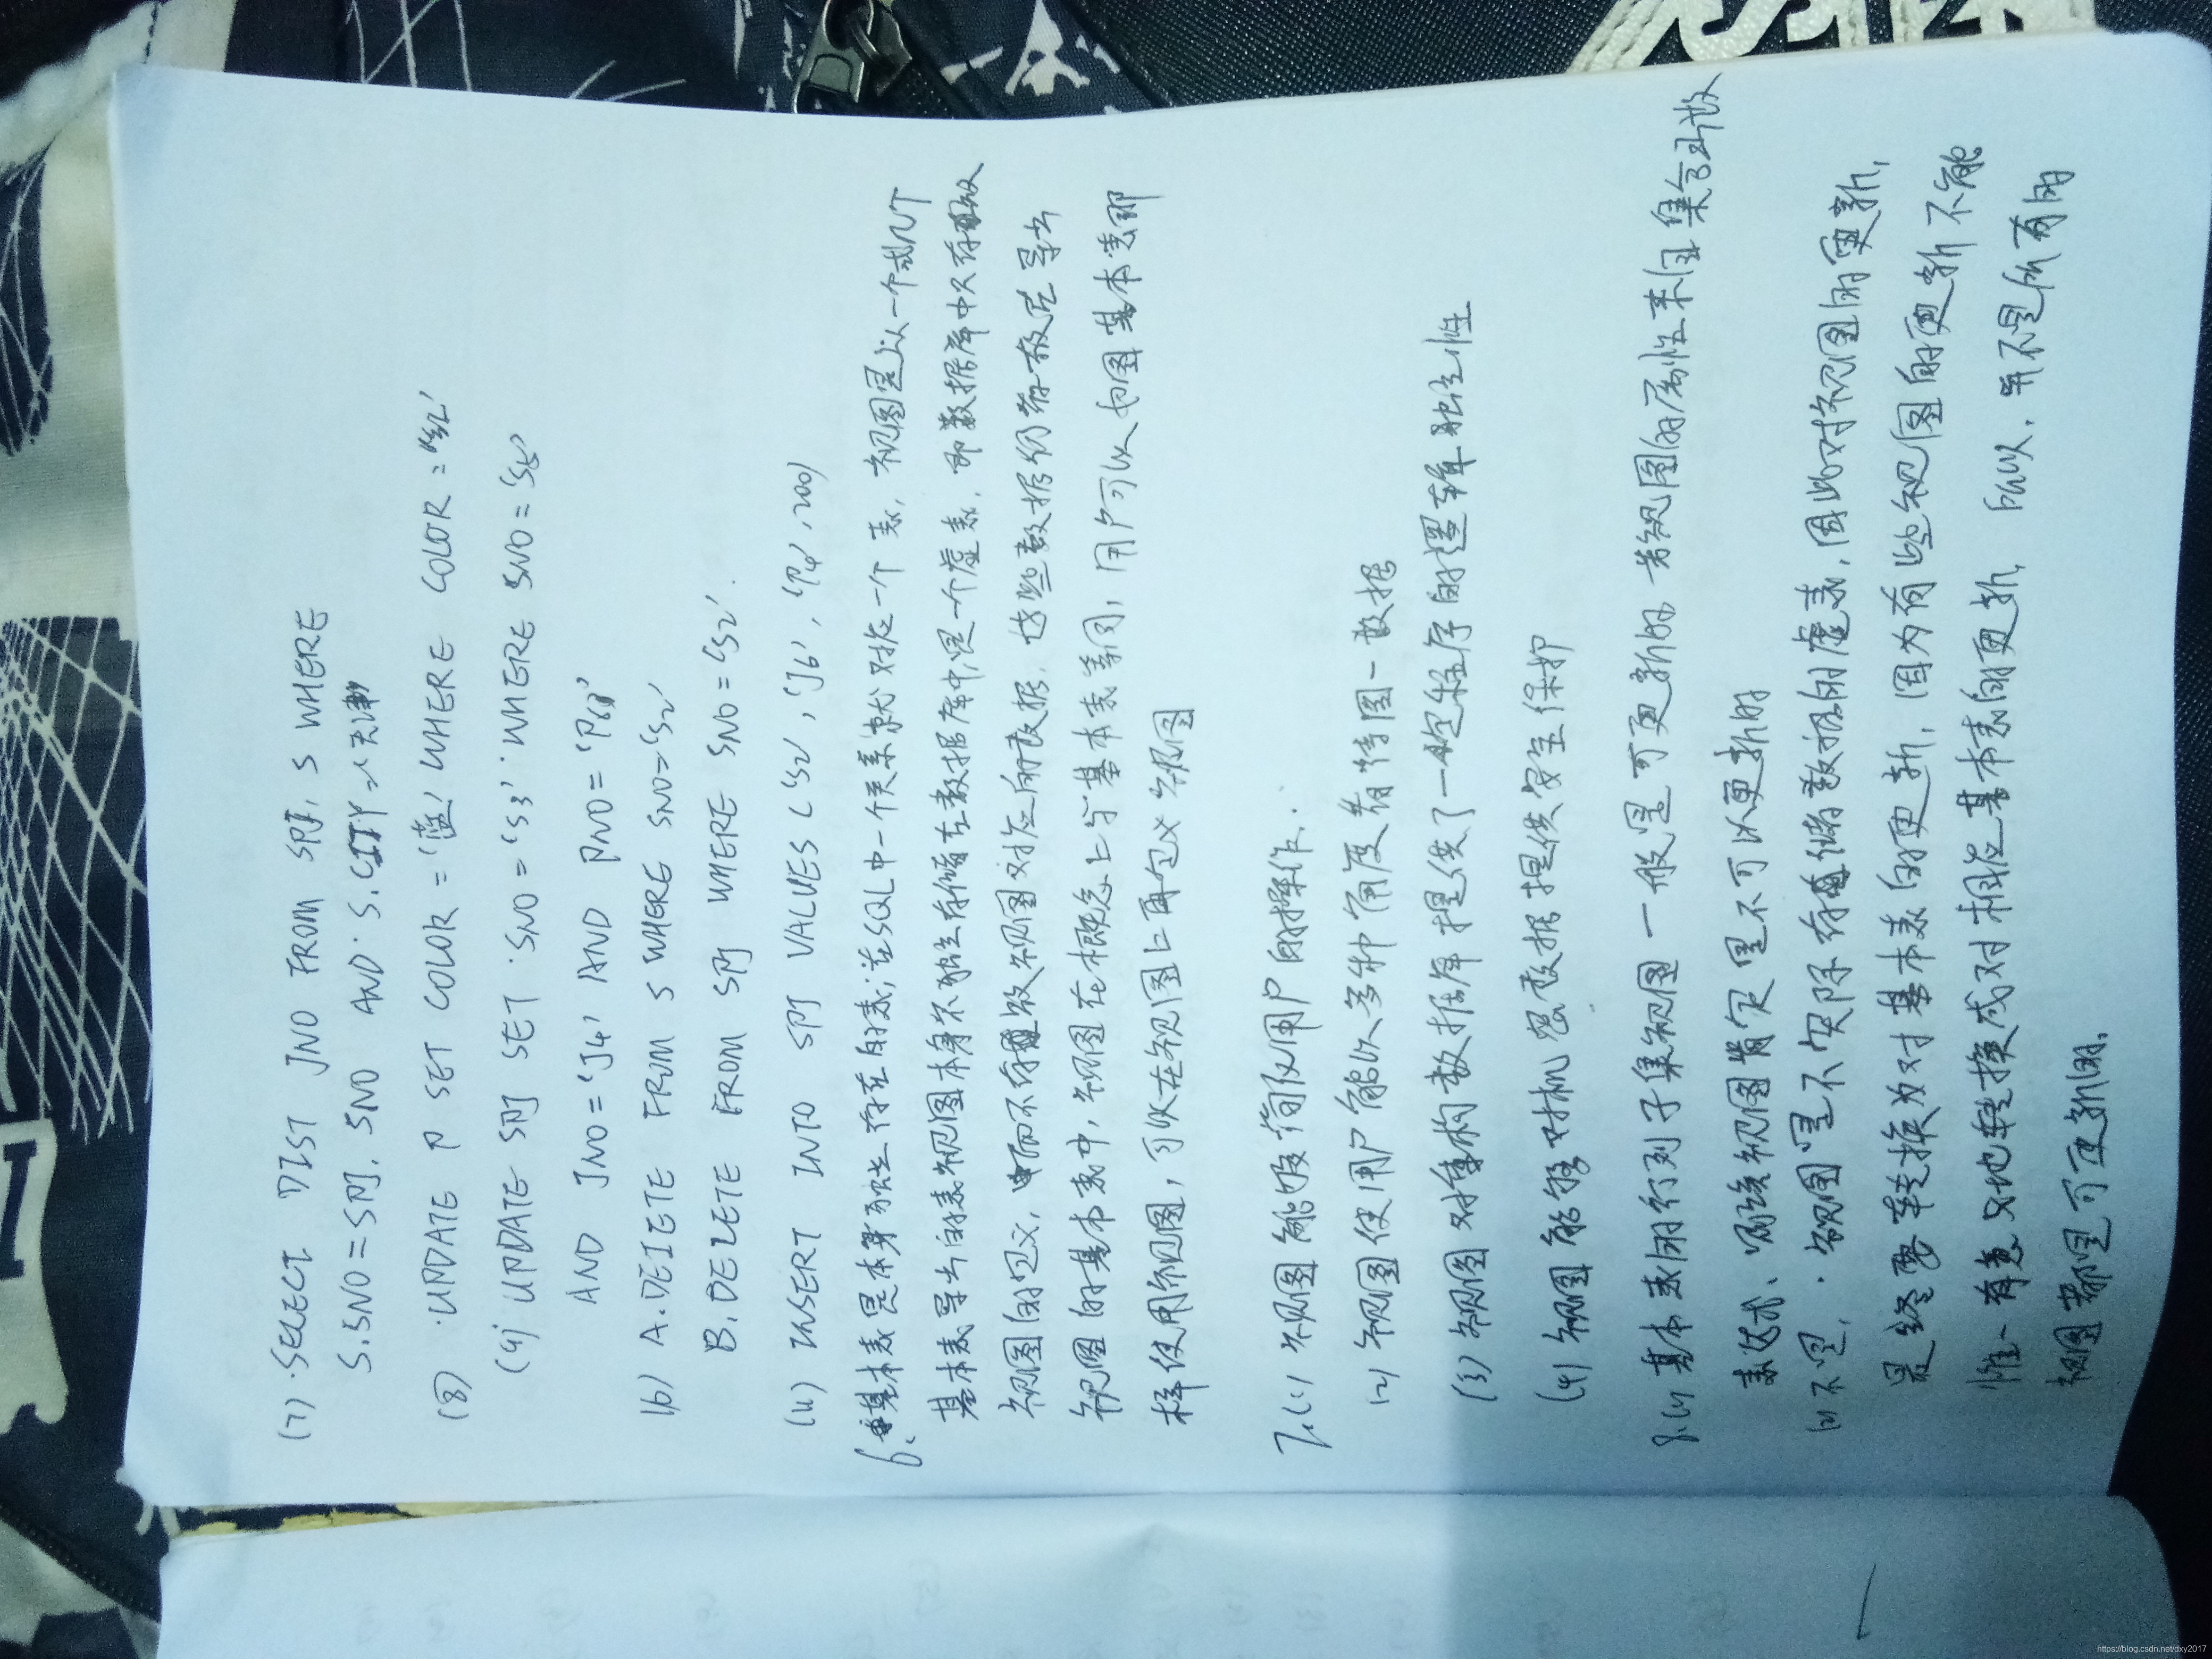 (7) SELECT DIST JNO FROM SPJ, S WHERE
S.SNO=SPJ.SNO AND S.CITY 天津
(8) UPDATE P SET COLOR='蓝' WHERE COLOR='红'
(9) UPDATE SPJ SET SNO='S3' WHERE SNO='S5'
AND JNO='J4' AND PNO='P6'
10) A.DELETE FROM S WHERE SNO='S2'
B.DELETE FROM SPJ WHERE SNO='S2'.
(11) INSERT INTO SPJ VALUES ('S2','J6','P4',200)
6、基本表是本身独立存在的表,在SQL中一个关系就对应一个表,视图是从一个或几个
基本表导出的表视图本身不独立存储在数据库中,是一个虚表,即数据库中只存放
视图的定义,而不存放视图对应的数据,这些数据仍存放在导出
视图的基本表中,视图在概念上与基本表等同,用户可以如同基本表那
样使用视图,可以在视图上再定义视图
7.(1)视图能够简化用户的操作.
(2)视图使用户能以多种角度看待同一数据
(3)视图对重构数据库提供了一定程序的逻辑独立性
(4)视图能够对机密数据提供安全保护
8.(1)基本表的行列子集视图一般是可更新的 若视图的属性来自集合函数、
表达式、则该视图肯定是不可以更新的
(2)不是.视图是不实际存储数据的虚表,因此对视图的更新,
是终要转换为对基本表的更新,因为有些视图的更新不能
惟一有意义地转换成对相应基本表的更新,所以,并不是所有的
视图都是可更新的.
https://blog.csdn.net/dxy2017